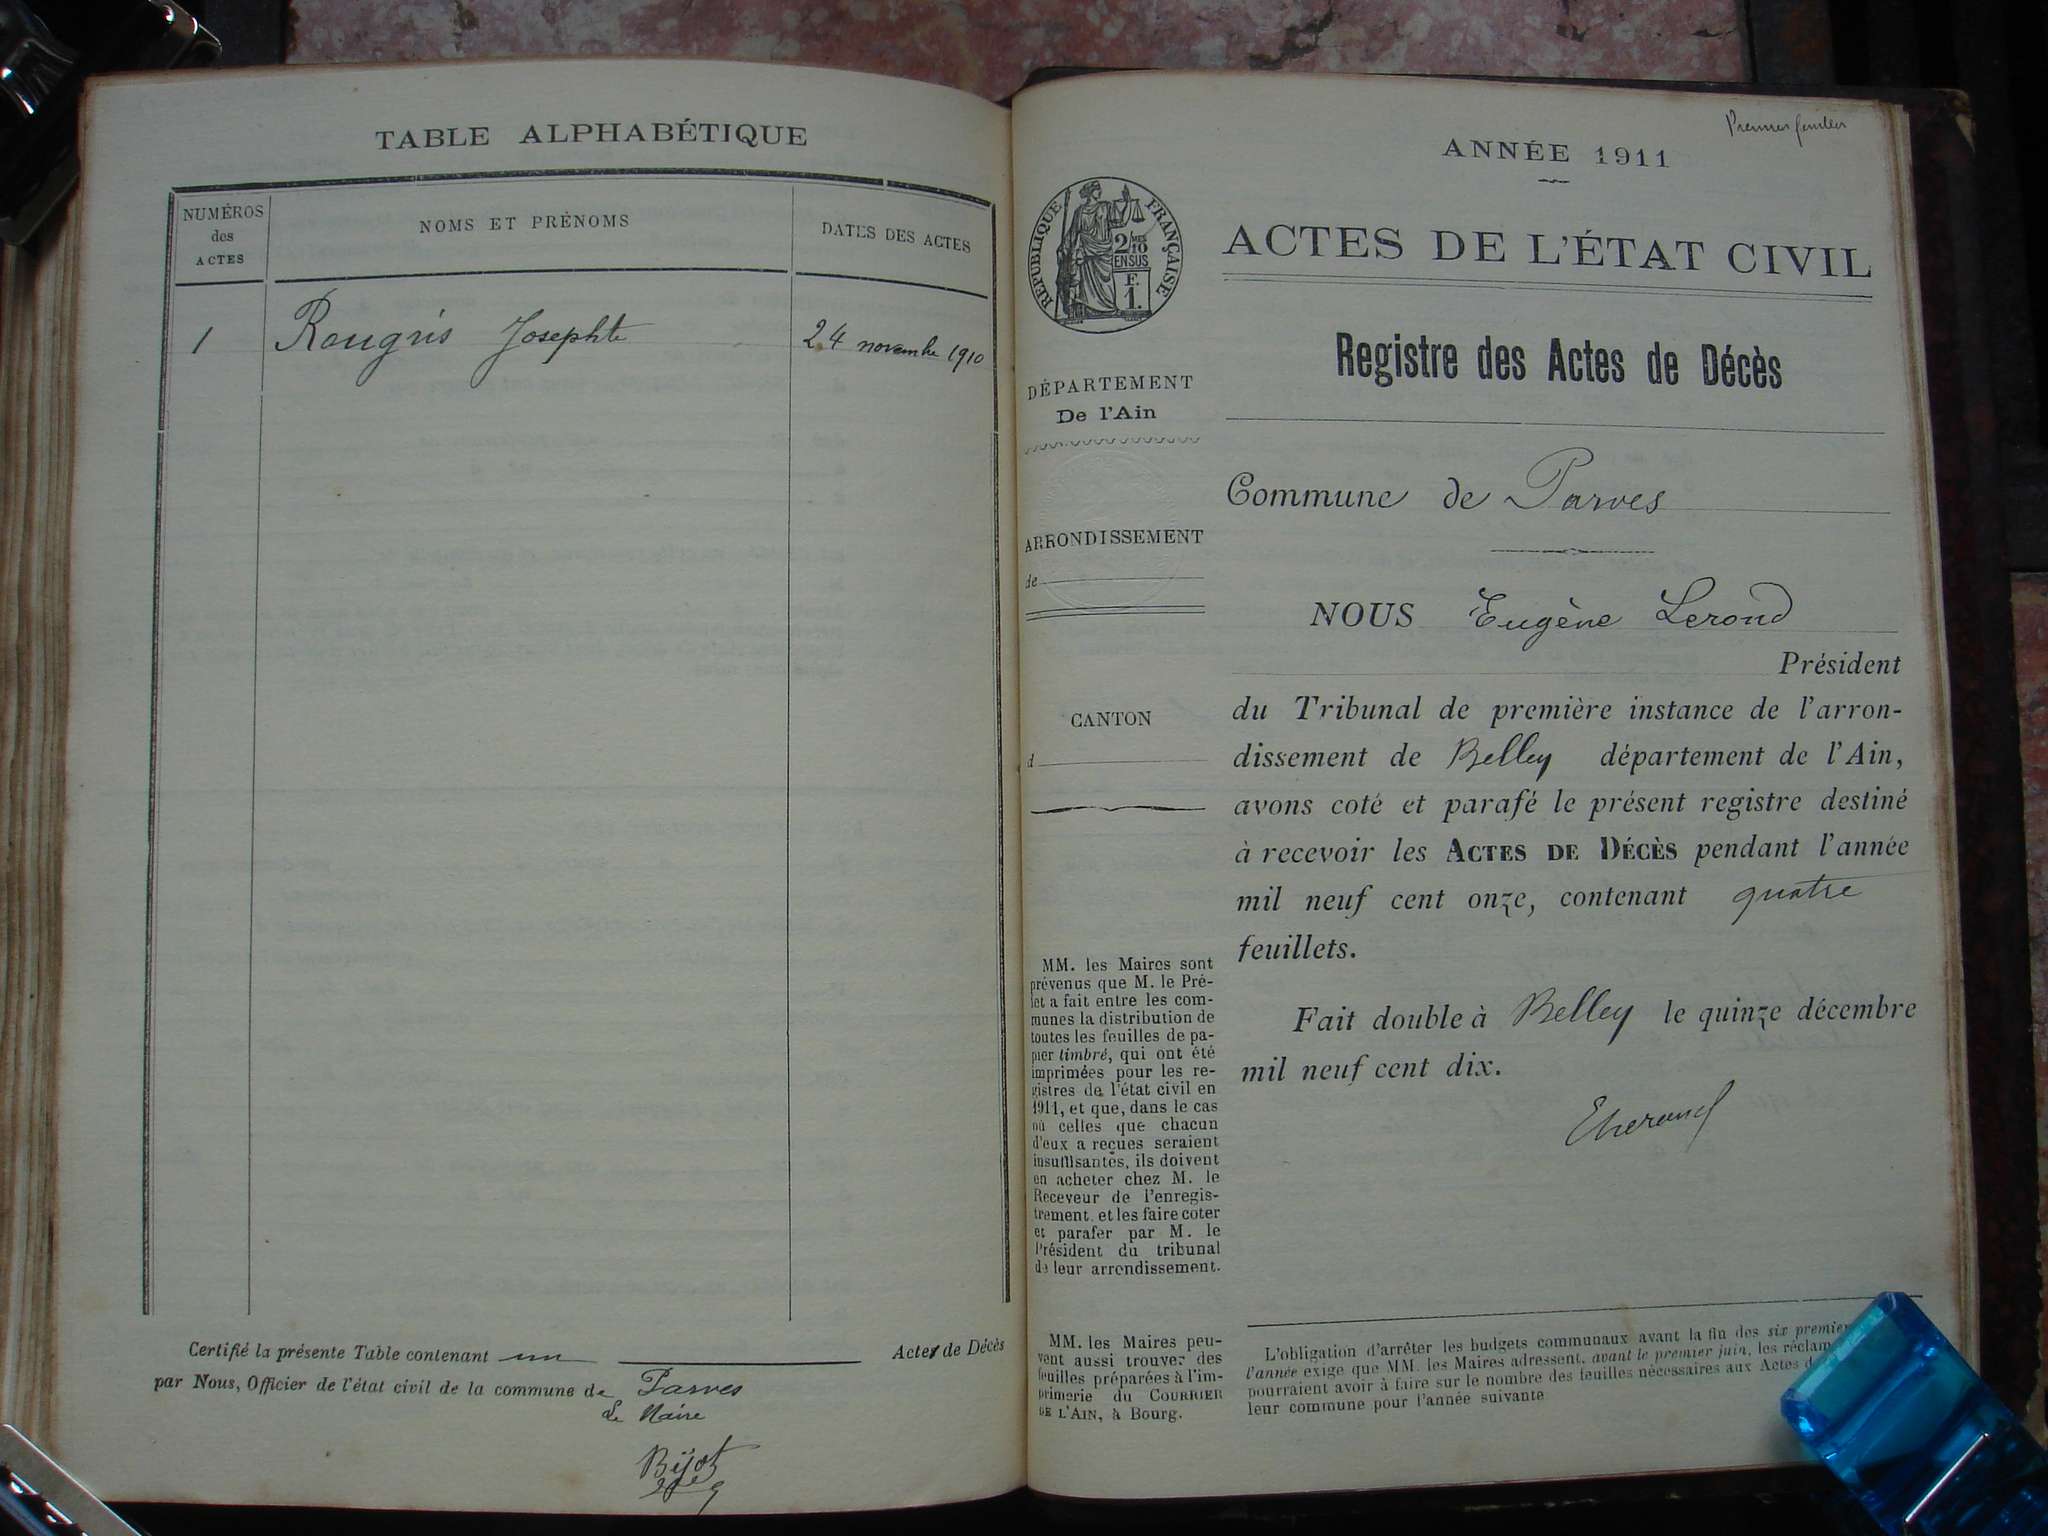 TABLE ALPHABÉTIQUE
NUMÉROS
des
ACTES
NOMS ET PRÉNOMS
DATES DES ACTES
1 Rougris Josephte 24 novembre 1910
Certifié la présente Table contenant un Actes de Décès
par Nous, Officier de l'état civil de la commune de Parves
Le Maire
Premier
ANNÉE 1911
RÉPUBLIQUE FRANÇAISE
2/10
EN SUS
F.
1.
ACTES DE L'ÉTAT CIVIL
Registre des Actes de Décès
DÉPARTEMENT
De l'Ain
ARRONDISSEMENT
de
CANTON
d
Commune de Parves
NOUS Eugène Lerond
Président
du Tribunal de première instance de l'arron-
dissement de Belley département de l'Ain,
avons coté et parafé le présent registre destiné
à recevoir les ACTES DE DÉCÈS pendant l'année
mil neuf cent onze, contenant quatre
feuillets.
Fait double à Belley le quinze décembre
mil neuf cent dix.
MM. les Maires sont
prévenus que M. le Pré-
fet a fait entre les com-
munes la distribution de
toutes les feuilles de pa-
pier timbré, qui ont été
imprimées pour les re-
gistres de l'état civil en
1911, et que, dans le cas
où celles que chacun
d'eux a reçues seraient
insuffisantes, ils doivent
en acheter chez M. le
Receveur de l'enregis-
trement. et les faire coter
et parafer par M. le
Président du tribunal
de leur arrondissement.
MM. les Maires peu-
vent aussi trouver des
feuilles préparées à l'im-
primerie du COURRIER
DE L'AIN, à Bourg.
L'obligation d'arrêter les budgets communaux avant la fin des six premier
l'année exige que MM. les Maires adressent, avant le premier juin, les réclam
pourraient avoir à faire sur le nombre des feuilles nécessaires aux Actes d
leur commune pour l'année suivante